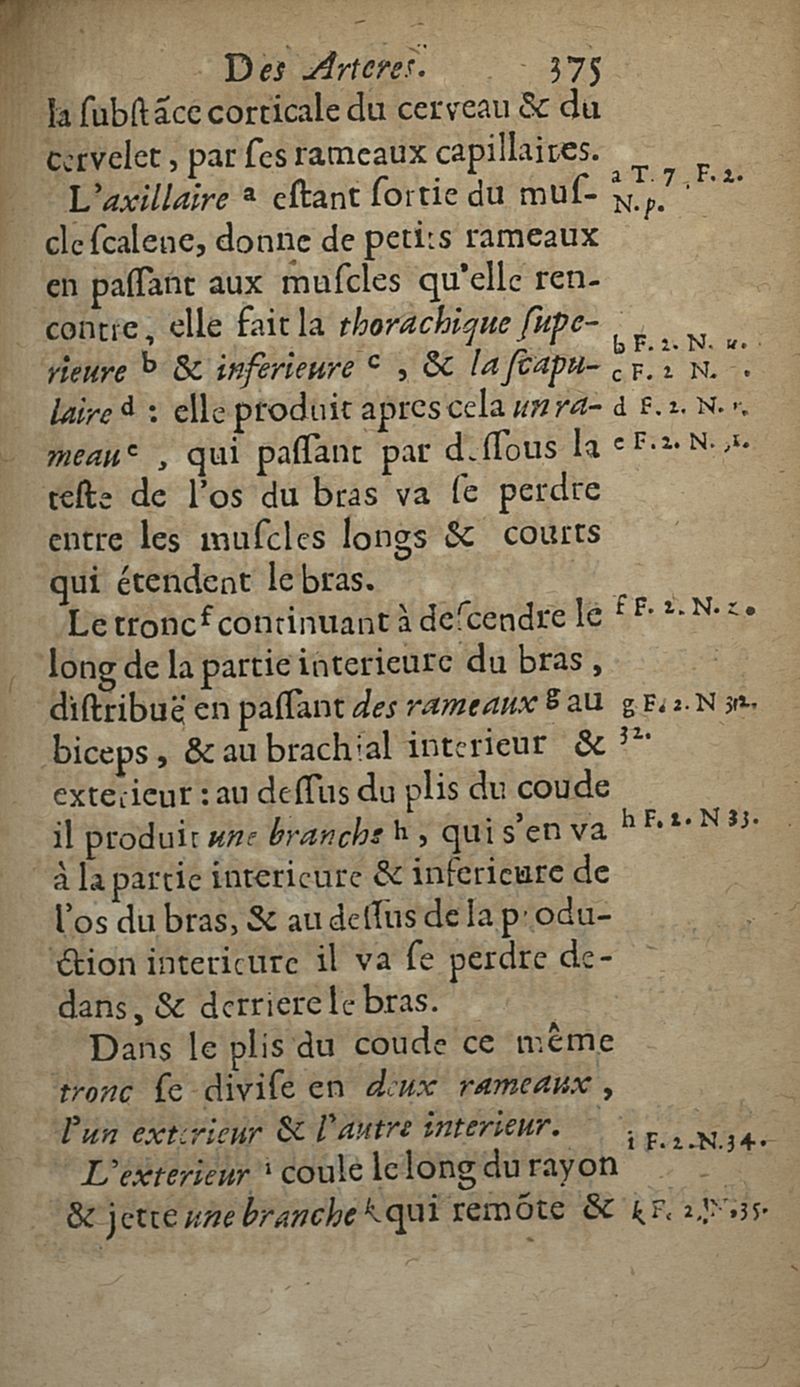 Des Arteres. 375
la ſubſtãce corticale du cerveau & du
cervelet, par ſes rameaux capillaires.
L'axillaire a eſtant ſortie du muſ-
a T. 7. F. 2.
N. p.
cle ſcalene, donne de petits rameaux
en paſſant aux muſcles qu'elle ren-
contre, elle fait la thorachique ſupe-
rieure b & inferieure c, & la ſcapu-
b F. 2. N.
c F. 2 N.
laire d : elle produit apres cela un ra-
d F. 2. N.
meau e, qui paſſant par deſſous la
e F. 2. N.
teſte de l'os du bras va ſe perdre
entre les muſcles longs & courts
qui étendent le bras.
Le tronc f continuant à deſcendre le
f F. 2. N.
long de la partie interieure du bras,
diſtribuë en paſſant des rameaux g au
g F. 2. N
biceps, & au brachial interieur &
32.
exterieur : au deſſus du plis du coude
il produit une branche h, qui s'en va
h F. 2. N 33.
à la partie interieure & inferieure de
l'os du bras, & au deſſus de la produ-
ction interieure il va ſe perdre de-
dans, & derriere le bras.
Dans le plis du coude ce même
tronc ſe diviſe en deux rameaux,
l'un exterieur & l'autre interieur.
L'exterieur i coule le long du rayon
i F. 2. N. 34.
& jette une branche k qui remõte &
k F. 2. N. 35.